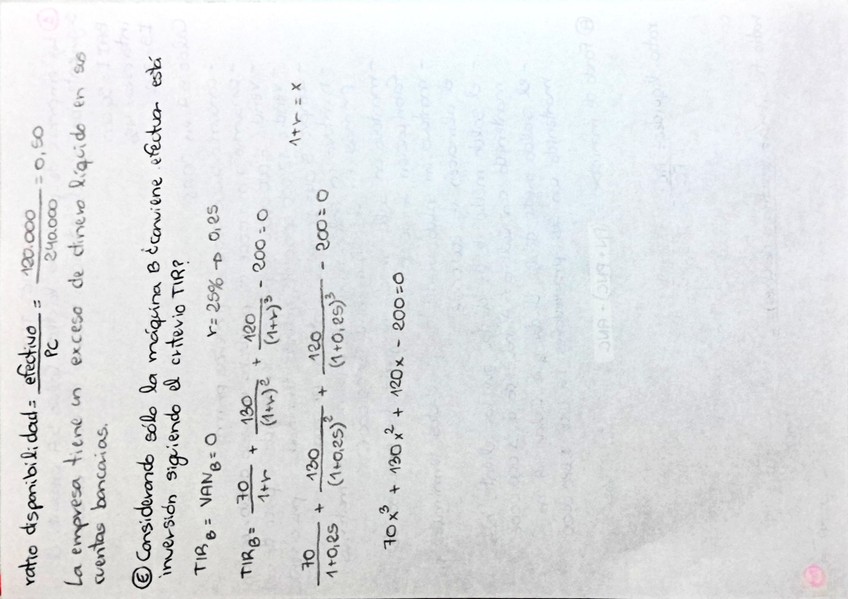 ratio disponibilidad = efectivo / PC = 120.000 / 240.000 = 0,50
La empresa tiene un exceso de dinero líquido en sus
cuentas bancarias.
Ⓔ Considerando sólo la máquina B ¿conviene efectuar está
inversión siguiendo el criterio TIR?
TIR_B = VAN_B = 0 r = 25% → 0,25
TIR_B = 70 / 1+r + 130 / (1+r)² + 120 / (1+r)³ - 200 = 0
70 / 1+0,25 + 130 / (1+0,25)² + 120 / (1+0,25)³ - 200 = 0 1+r = x
70x³ + 130x² + 120x - 200 = 0